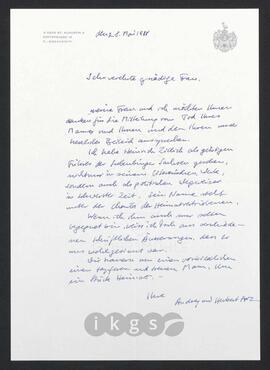 den 2. Mai 1988
Sehr verehrte gnädige Frau,
meine Frau und ich möchten Ihnen
danken für die Mitteilung vom Tod Ihres
Mannes und Ihnen und den Ihren unser
herzliches Beileid aussprechen.
Ich habe Heinrich Zillich als geistigen
Führer der Siebenbürger Sachsen gesehen,
nicht nur in seinem literarischen Werk,
sondern auch als politischen
in schwerster Zeit. Sein Name steht
unter der Charta der Heimatvertriebenen.
Wenn ich ihm auch nur selten
begegnet bin, weiss ich doch aus
schriftlichen Äusserungen, dass er
uns wohlgesinnt war.
Wir trauern um einen
einen tapferen und treuen Mann. Um
ein Stück Heimat.
Ihre
Andrea und Herbert
ikgs